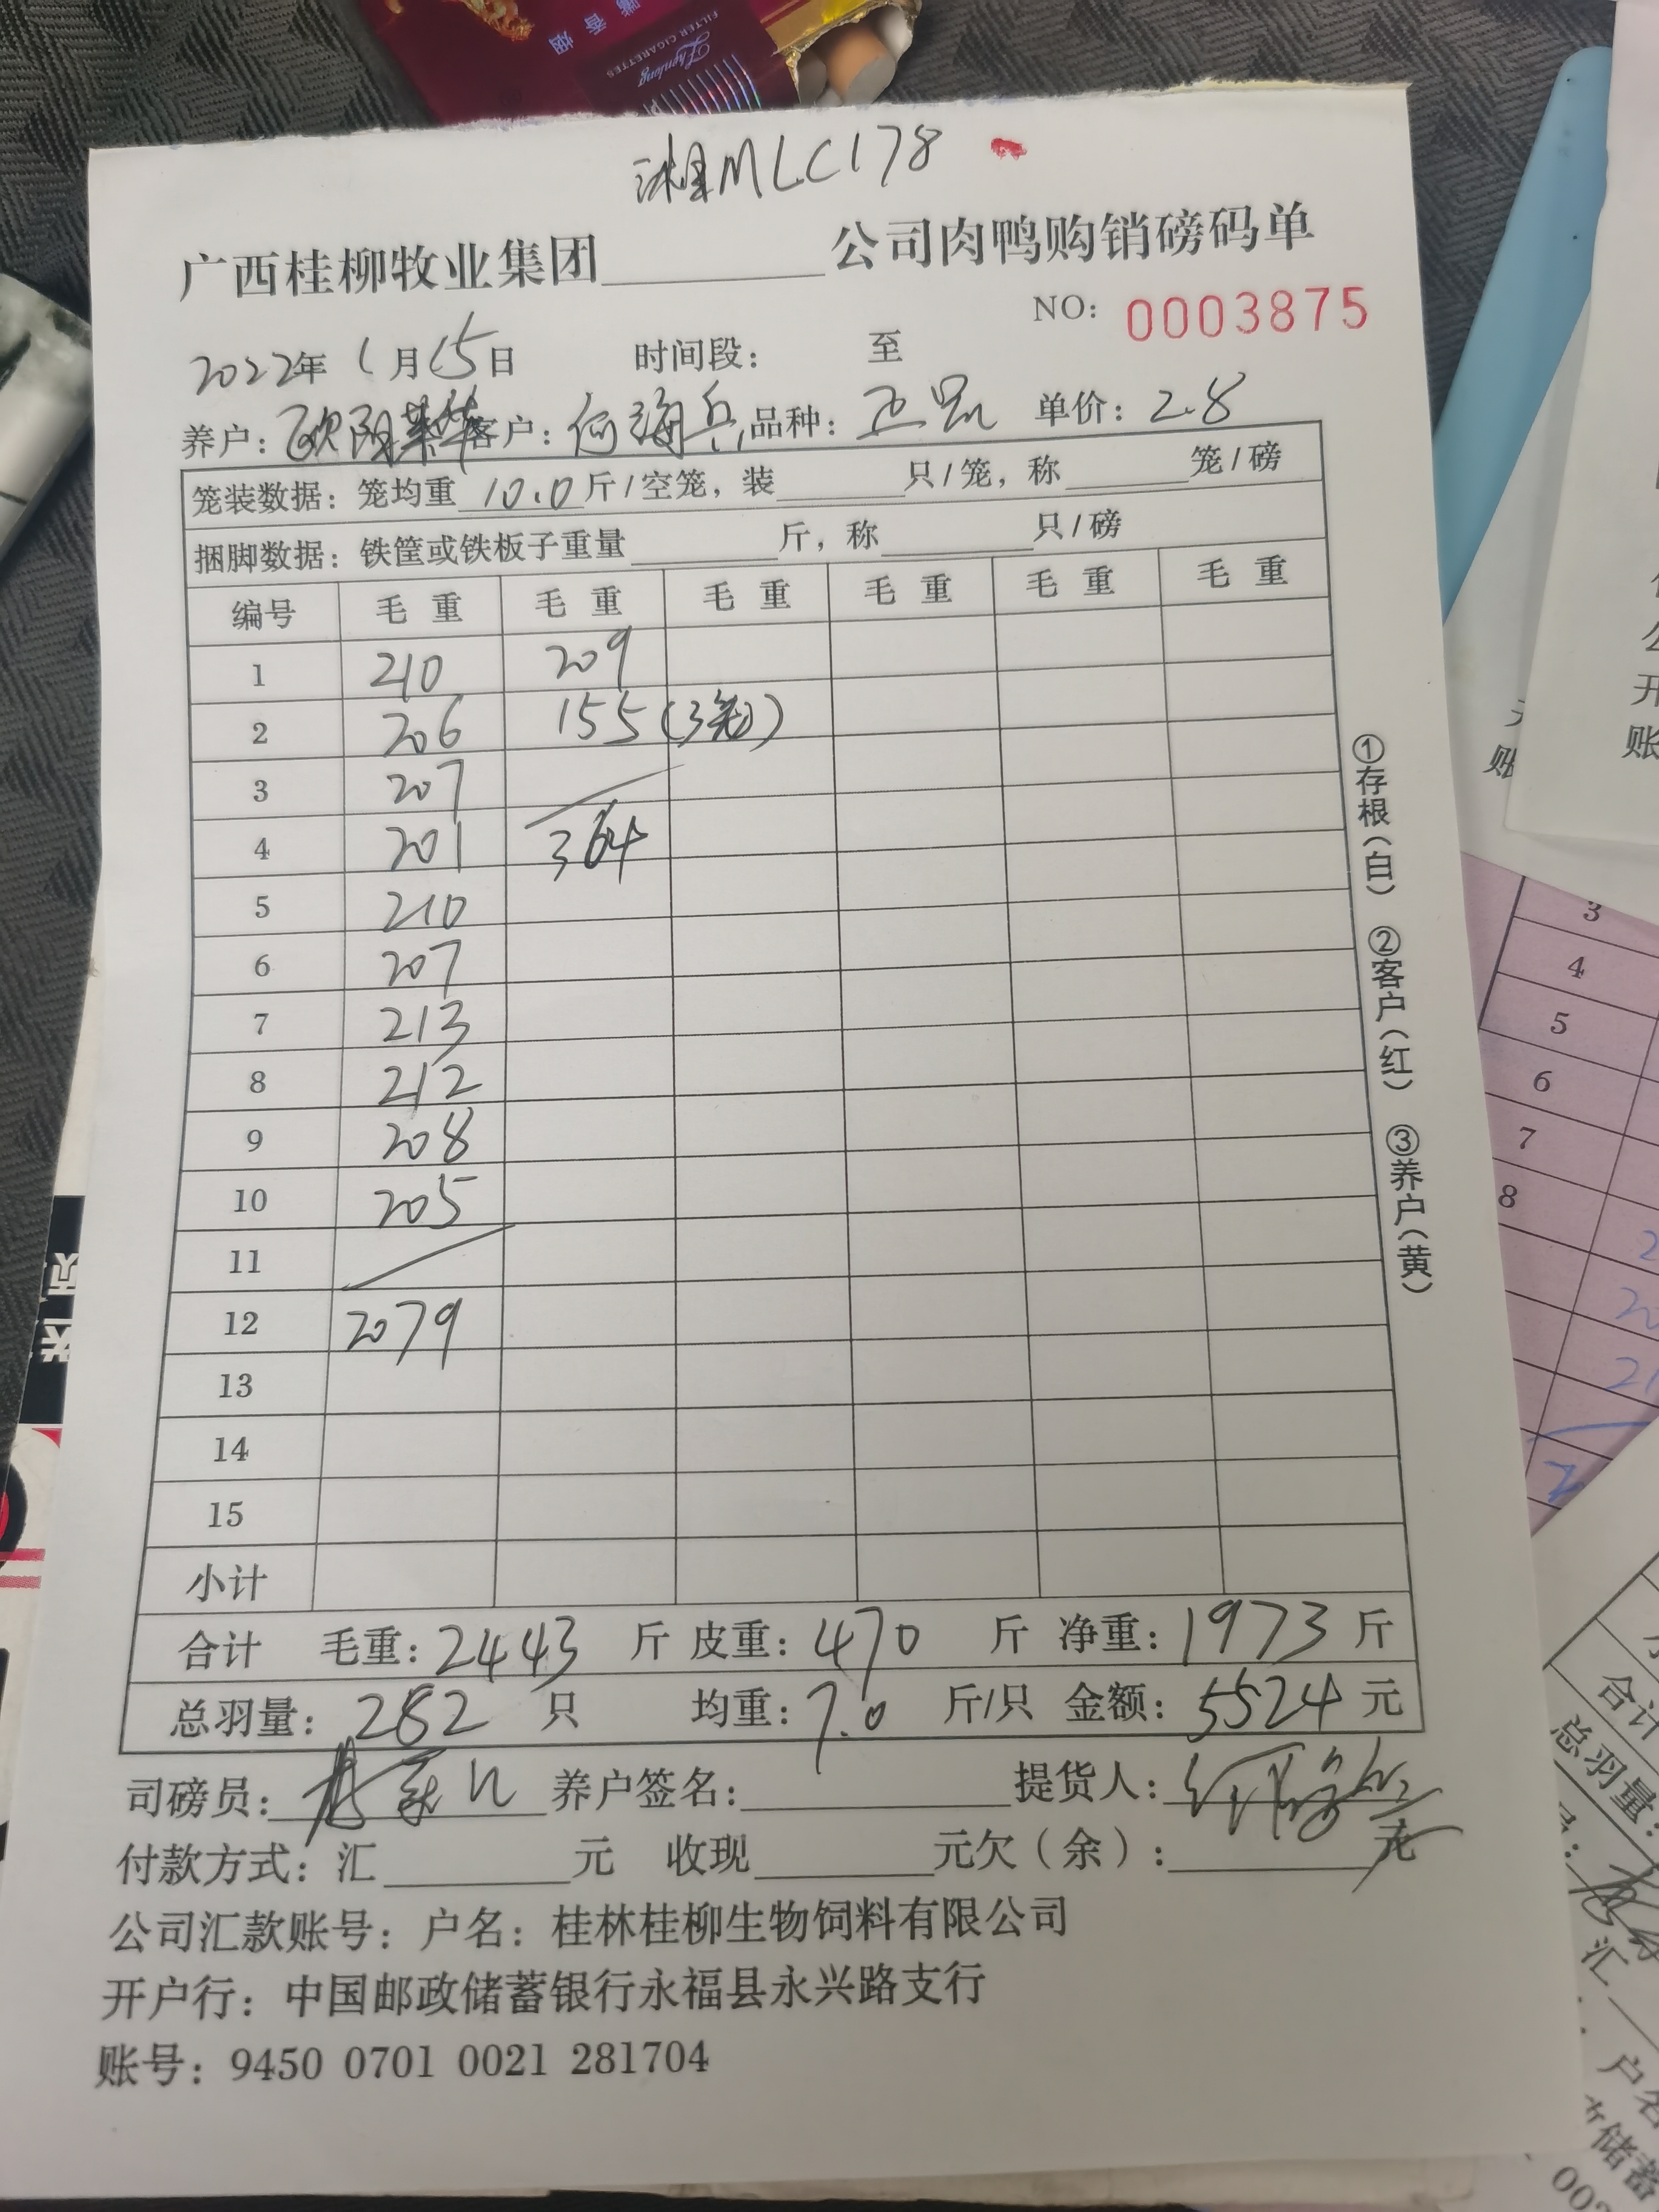 FILTER CIGARETTES
Zhenlong
湘MLC178
广西桂柳牧业集团 公司肉鸭购销磅码单
NO: 0003875
2022年 1月15日 时间段: 至
养户: 欧阳 客户: 何海兵 品种: 单价: 2.8
笼装数据: 笼均重 10.0 斤/空笼, 装 只/笼, 称 笼/磅
捆脚数据: 铁筐或铁板子重量 斤, 称 只/磅
编号 毛重 毛重 毛重 毛重 毛重 毛重
1 210 209
2 206 155 (3笼)
3 207
4 201 364
5 210
6 207
7 213
8 212
9 208
10 205
11
12 2079
13
14
15
小计
合计 毛重: 2443 斤 皮重: 470 斤 净重: 1973 斤
总羽量: 282 只 均重: 7.0 斤/只 金额: 5524 元
司磅员: 养户签名: 提货人:
付款方式: 汇 元 收现 元欠(余): 元
公司汇款账号: 户名: 桂林桂柳生物饲料有限公司
开户行: 中国邮政储蓄银行永福县永兴路支行
账号: 9450 0701 0021 281704
①存根(白) ②客户(红) ③养户(黄)
3
4
5
6
7
8
合计
总羽量:
汇
户名
储蓄